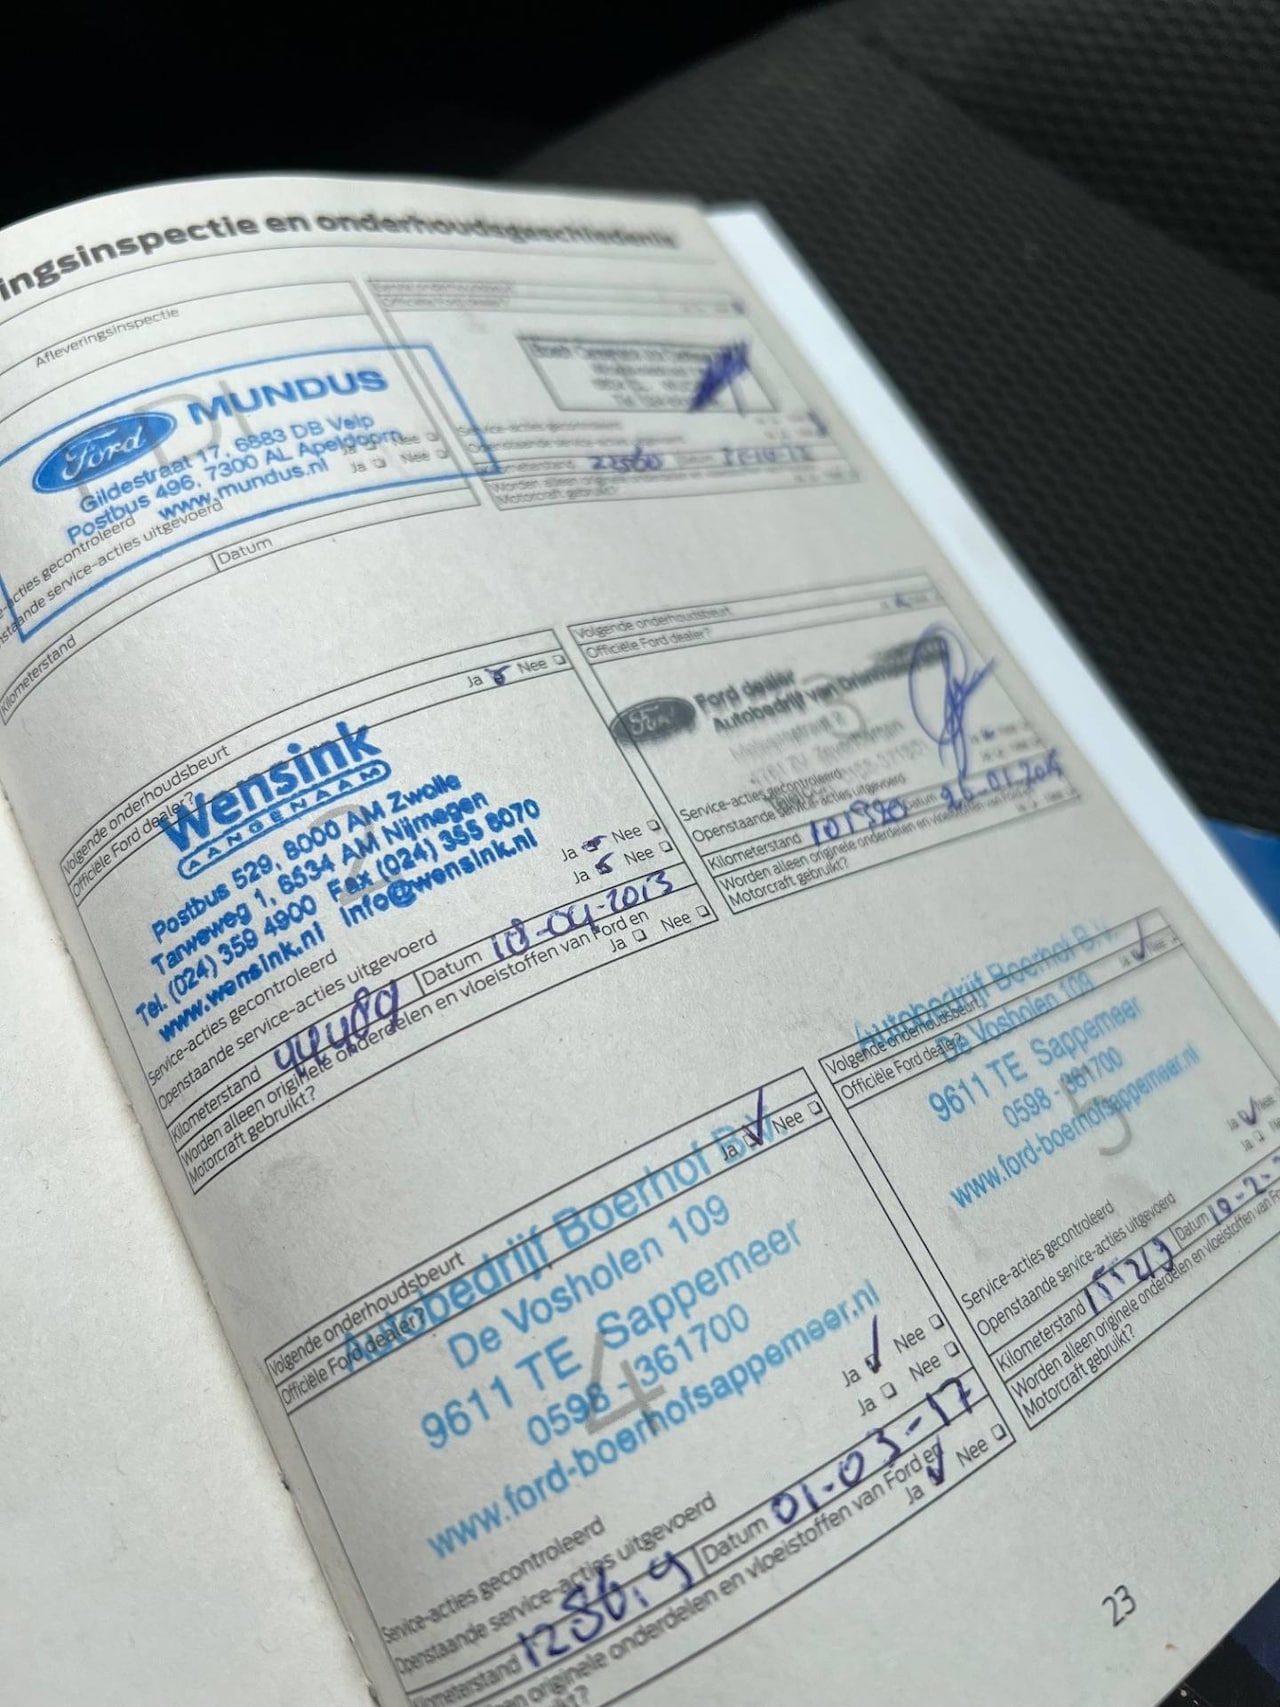 ingsinspectie en onderhoudsgeschiedenis
Afleveringsinspectie
Ford
MUNDUS
Gildestraat 17, 6883 DB Velp
Postbus 496, 7300 AL Apeldoorn
www.mundus.nl
Ja Nee
Ja Nee
-acties gecontroleerd
service-acties uitgevoerd
Kilometerstand
Datum
Officiële Ford dealer?
Service-acties gecontroleerd
Openstaande service-acties
Worden alleen originele onderdelen en
Motorcraft gebruikt?
Volgende onderhoudsbeurt
Officiële Ford dealer?
Ja Nee
Wensink
AANGENAAM
2
Postbus 529, 8000 AM Zwolle
Tarweweg 1, 6534 AM Nijmegen
Tel. (024) 359 4900 Fax (024) 355 6070
www.wensink.nl info@wensink.nl
Service-acties gecontroleerd Ja Nee
Openstaande service-acties uitgevoerd Ja Nee
Kilometerstand 44489 Datum 18-04-2013
Worden alleen originele onderdelen en vloeistoffen van Ford en
Motorcraft gebruikt? Ja Nee
Volgende onderhoudsbeurt
Officiële Ford dealer?
Ford
Ford dealer
Autobedrijf van
3
Service-acties gecontroleerd
Openstaande service-acties uitgevoerd
Kilometerstand Datum
Worden alleen originele onderdelen en vloeistoffen van Ford en
Motorcraft gebruikt?
Volgende onderhoudsbeurt
Officiële Ford dealer? Ja Nee
Autobedrijf Boerhof B.V.
De Vosholen 109
9611 TE Sappemeer
0598 - 361700
www.ford-boerhofsappemeer.nl
4
Service-acties gecontroleerd Ja Nee
Openstaande service-acties uitgevoerd Ja Nee
Kilometerstand Datum 01-03-17
originele onderdelen en vloeistoffen van Ford en
gebruikt? Ja Nee
Volgende onderhoudsbeurt
Officiële Ford dealer?
Autobedrijf Boerhof B.V.
De Vosholen 109
9611 TE Sappemeer
0598 - 361700
www.ford-boerhofsappemeer.nl
5
Service-acties gecontroleerd
Openstaande service-acties uitgevoerd
Kilometerstand Datum
Worden alleen originele onderdelen en vloeistoffen van
Motorcraft gebruikt?
23